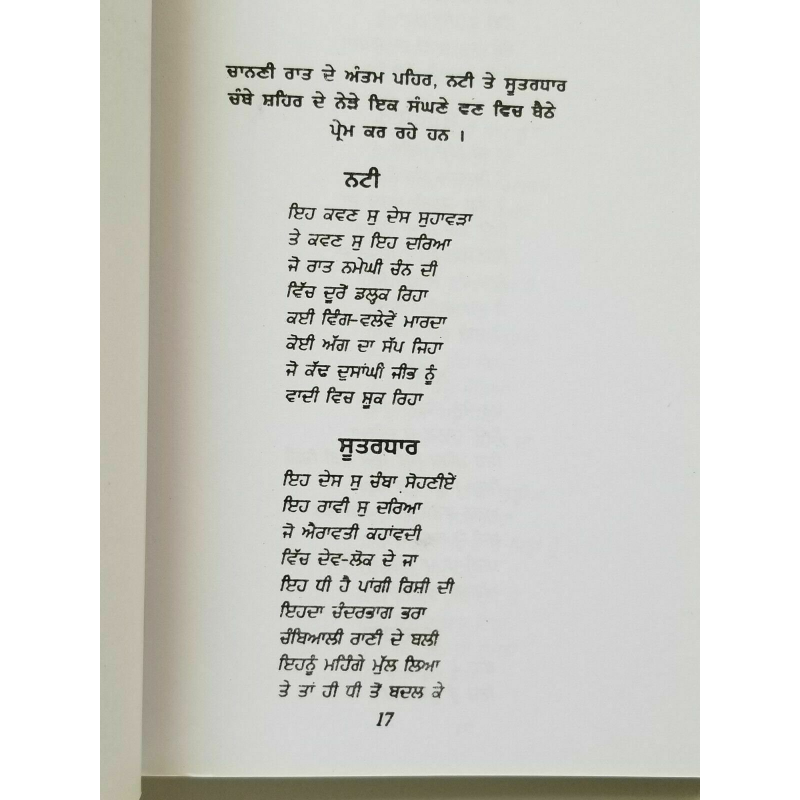 ਚਾਨਣੀ ਰਾਤ ਦੇ ਅੰਤਮ ਪਹਿਰ, ਨਟੀ ਤੇ ਸੂਤਰਧਾਰ
ਚੰਬੇ ਸ਼ਹਿਰ ਦੇ ਨੇੜੇ ਇਕ ਸੰਘਣੇ ਵਣ ਵਿਚ ਬੈਠੇ
ਪ੍ਰੇਮ ਕਰ ਰਹੇ ਹਨ ।
ਨਟੀ
ਇਹ ਕਵਣ ਸੁ ਦੇਸ ਸੁਹਾਵੜਾ
ਤੇ ਕਵਣ ਸੁ ਇਹ ਦਰਿਆ
ਜੋ ਰਾਤ ਨਮੇਘੀ ਚੰਨ ਦੀ
ਵਿੱਚ ਦੂਰੋਂ ਡਲ੍ਹਕ ਰਿਹਾ
ਕਈ ਵਿੰਗ-ਵਲੇਵੇਂ ਮਾਰਦਾ
ਕੋਈ ਅੱਗ ਦਾ ਸੱਪ ਜਿਹਾ
ਜੋ ਕੱਢ ਦੁਸਾਂਘੀ ਜੀਭ ਨੂੰ
ਵਾਦੀ ਵਿਚ ਸ਼ੂਕ ਰਿਹਾ
ਸੂਤਰਧਾਰ
ਇਹ ਦੇਸ ਸੁ ਚੰਬਾ ਸੋਹਣੀਏਂ
ਇਹ ਰਾਵੀ ਸੁ ਦਰਿਆ
ਜੋ ਐਰਾਵਤੀ ਕਹਾਂਵਦੀ
ਵਿੱਚ ਦੇਵ-ਲੋਕ ਦੇ ਜਾ
ਇਹ ਧੀ ਹੈ ਪਾਂਗੀ ਰਿਸ਼ੀ ਦੀ
ਇਹਦਾ ਚੰਦਰਭਾਗ ਭਰਾ
ਚੰਬਿਆਲੀ ਰਾਣੀ ਦੇ ਬਲੀ
ਇਹਨੂੰ ਮਹਿੰਗੇ ਮੁੱਲ ਲਿਆ
ਤੇ ਤਾਂ ਹੀ ਧੀ ਤੋਂ ਬਦਲ ਕੇ
17